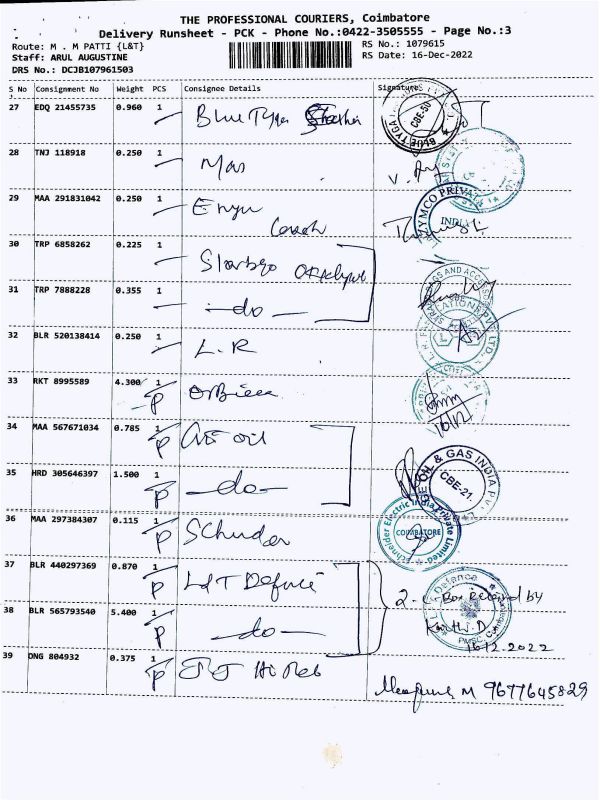 THE PROFESSIONAL COURIERS, Coimbatore
Delivery Runsheet - PCK - Phone No.:0422-3505555 - Page No.:3
Route: M . M PATTI {L&T}
RS No.: 1079615
Staff: ARUL AUGUSTINE
RS Date: 16-Dec-2022
DRS No.: DCJB107961503
S No Consignment No Weight PCS Consignee Details Signature
27 EDQ 21455735 0.960 1 Blue Tyga
CBE-50
28 TNJ 118918 0.250 1 Mas
29 MAA 291831042 0.250 1 Enyu
INDIA
30 TRP 6858262 0.225 1
31 TRP 7888228 0.355 1 -do-
32 BLR 520138414 0.250 1 L.R
33 RKT 8995589 4.300 1 P
16/12
34 MAA 567671034 0.785 1 P GE oil
35 HRD 305646397 1.500 1 P -do-
OIL & GAS INDIA
CBE-21
36 MAA 297384307 0.115 1 P
Schneider Electric India Private Limited
COIMBATORE
37 BLR 440297369 0.870 1 P L&T Defence
2 - Box Received by
38 BLR 565793540 5.400 1 P -do-
16.12.2022
39 ONG 804932 0.375 1 P
M 9677645829